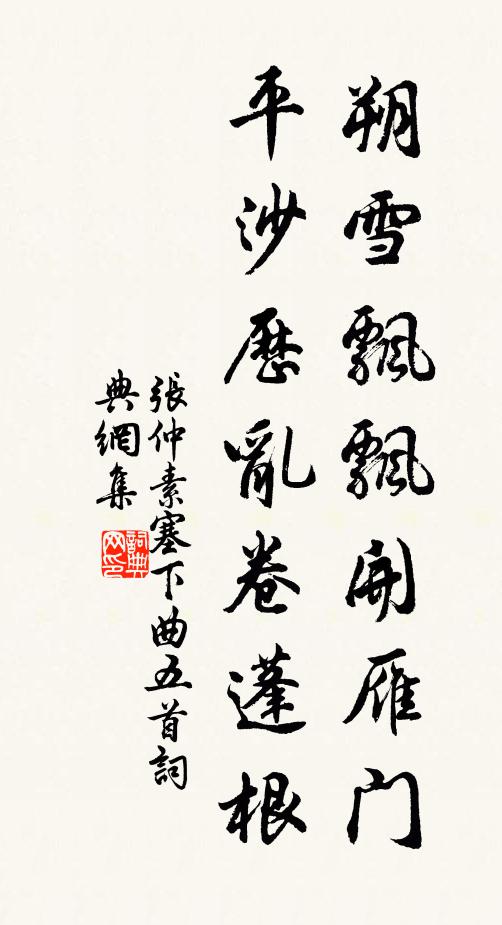 朔雪飄飄開雁门
平沙歷亂卷蓬根
張仲素塞下曲五首詞
典網集
詞典
网印